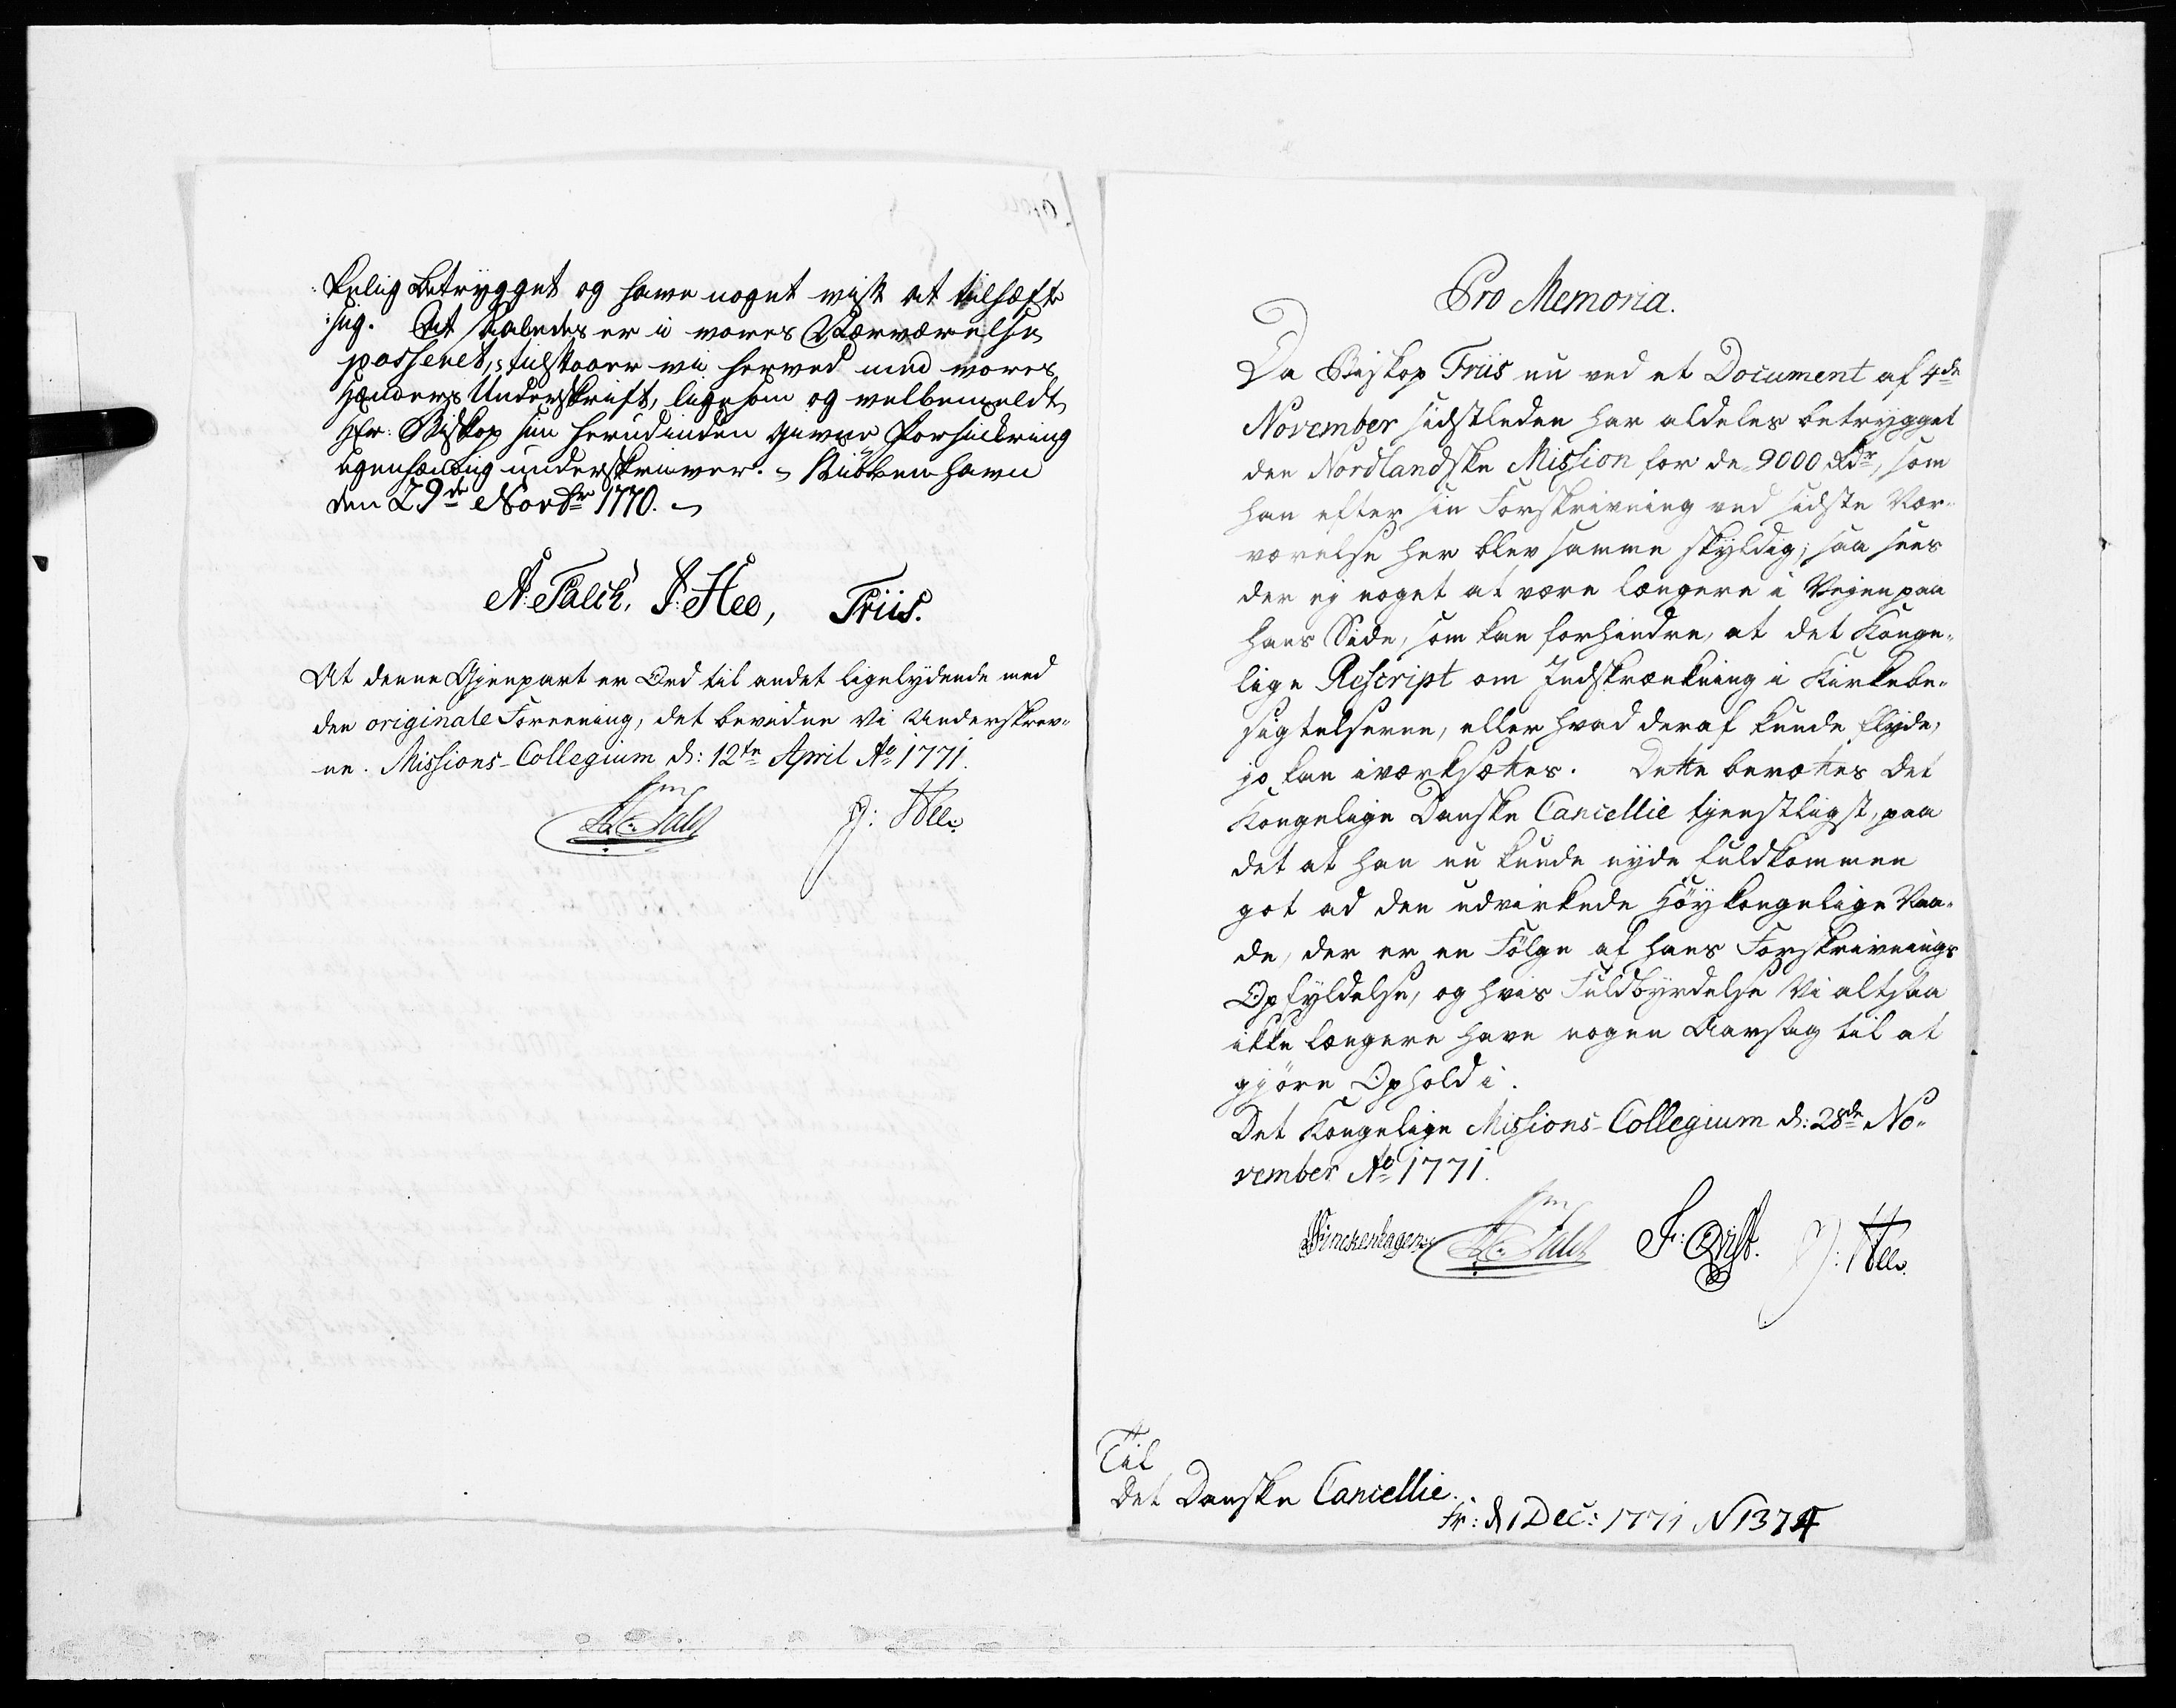 kelig betrygget og have noget vist at tilhæfte
sig. At saaledes er i vores Nærværelse
passeret, tilstaaer vi herved med vores
Hænders Underskrift, ligesom og velbemeldte
Hr: Biskop sin herudinden givne Forsickring
egenhændig underskriver. Kiöbbenhavn
den 29de Novbr 1770.
A: Falck, J: Hee, Friis.
At denne Gjenpart er Ord til andet ligelydende med
den originale Foreening, det bevidne Vi Underskrev-
ne. Missions-Collegium d: 12te April Ao 1771.
Am. Falck J: Hee.
Pro Memoria.
Da Biskop Friis nu ved et Document af 4de
November sidstleden har aldeles betrygget
den Nordlandske Mission for de 9000 Rdr, som
han efter sin Forskrivning ved sidste Nær-
værelse her blev samme skyldig; saa sees
der ej noget at være længere i Vejen paa
hans Side, som kan forhindre, at det Konge-
lige Rescript om Indskrænkning i Kirkebe-
sigtelserne, eller hvad deraf kunde flyde,
jo kan iværksættes. Dette berættes det
Kongelige Danske Cancellie tjenstligst, paa
det at han nu kunde nyde fuldkommen
got ad den udvirkede Höykongelige Naa-
de, der er en Fölge af hans Forskrivnings
Opfyldelse, og hvis Fuldbyrdelse Vi altsaa
ikke længere have nogen Aarsag til at
gjöre Ophold i.
Det Kongelige Missions-Collegium d: 28de No-
vember Ao 1771.
Finckenhagen Am. Falck F: Qvist. J: Hee.
Til
Det Danske Cancellie.
Fr: d 1 Dec: 1771 N 1374